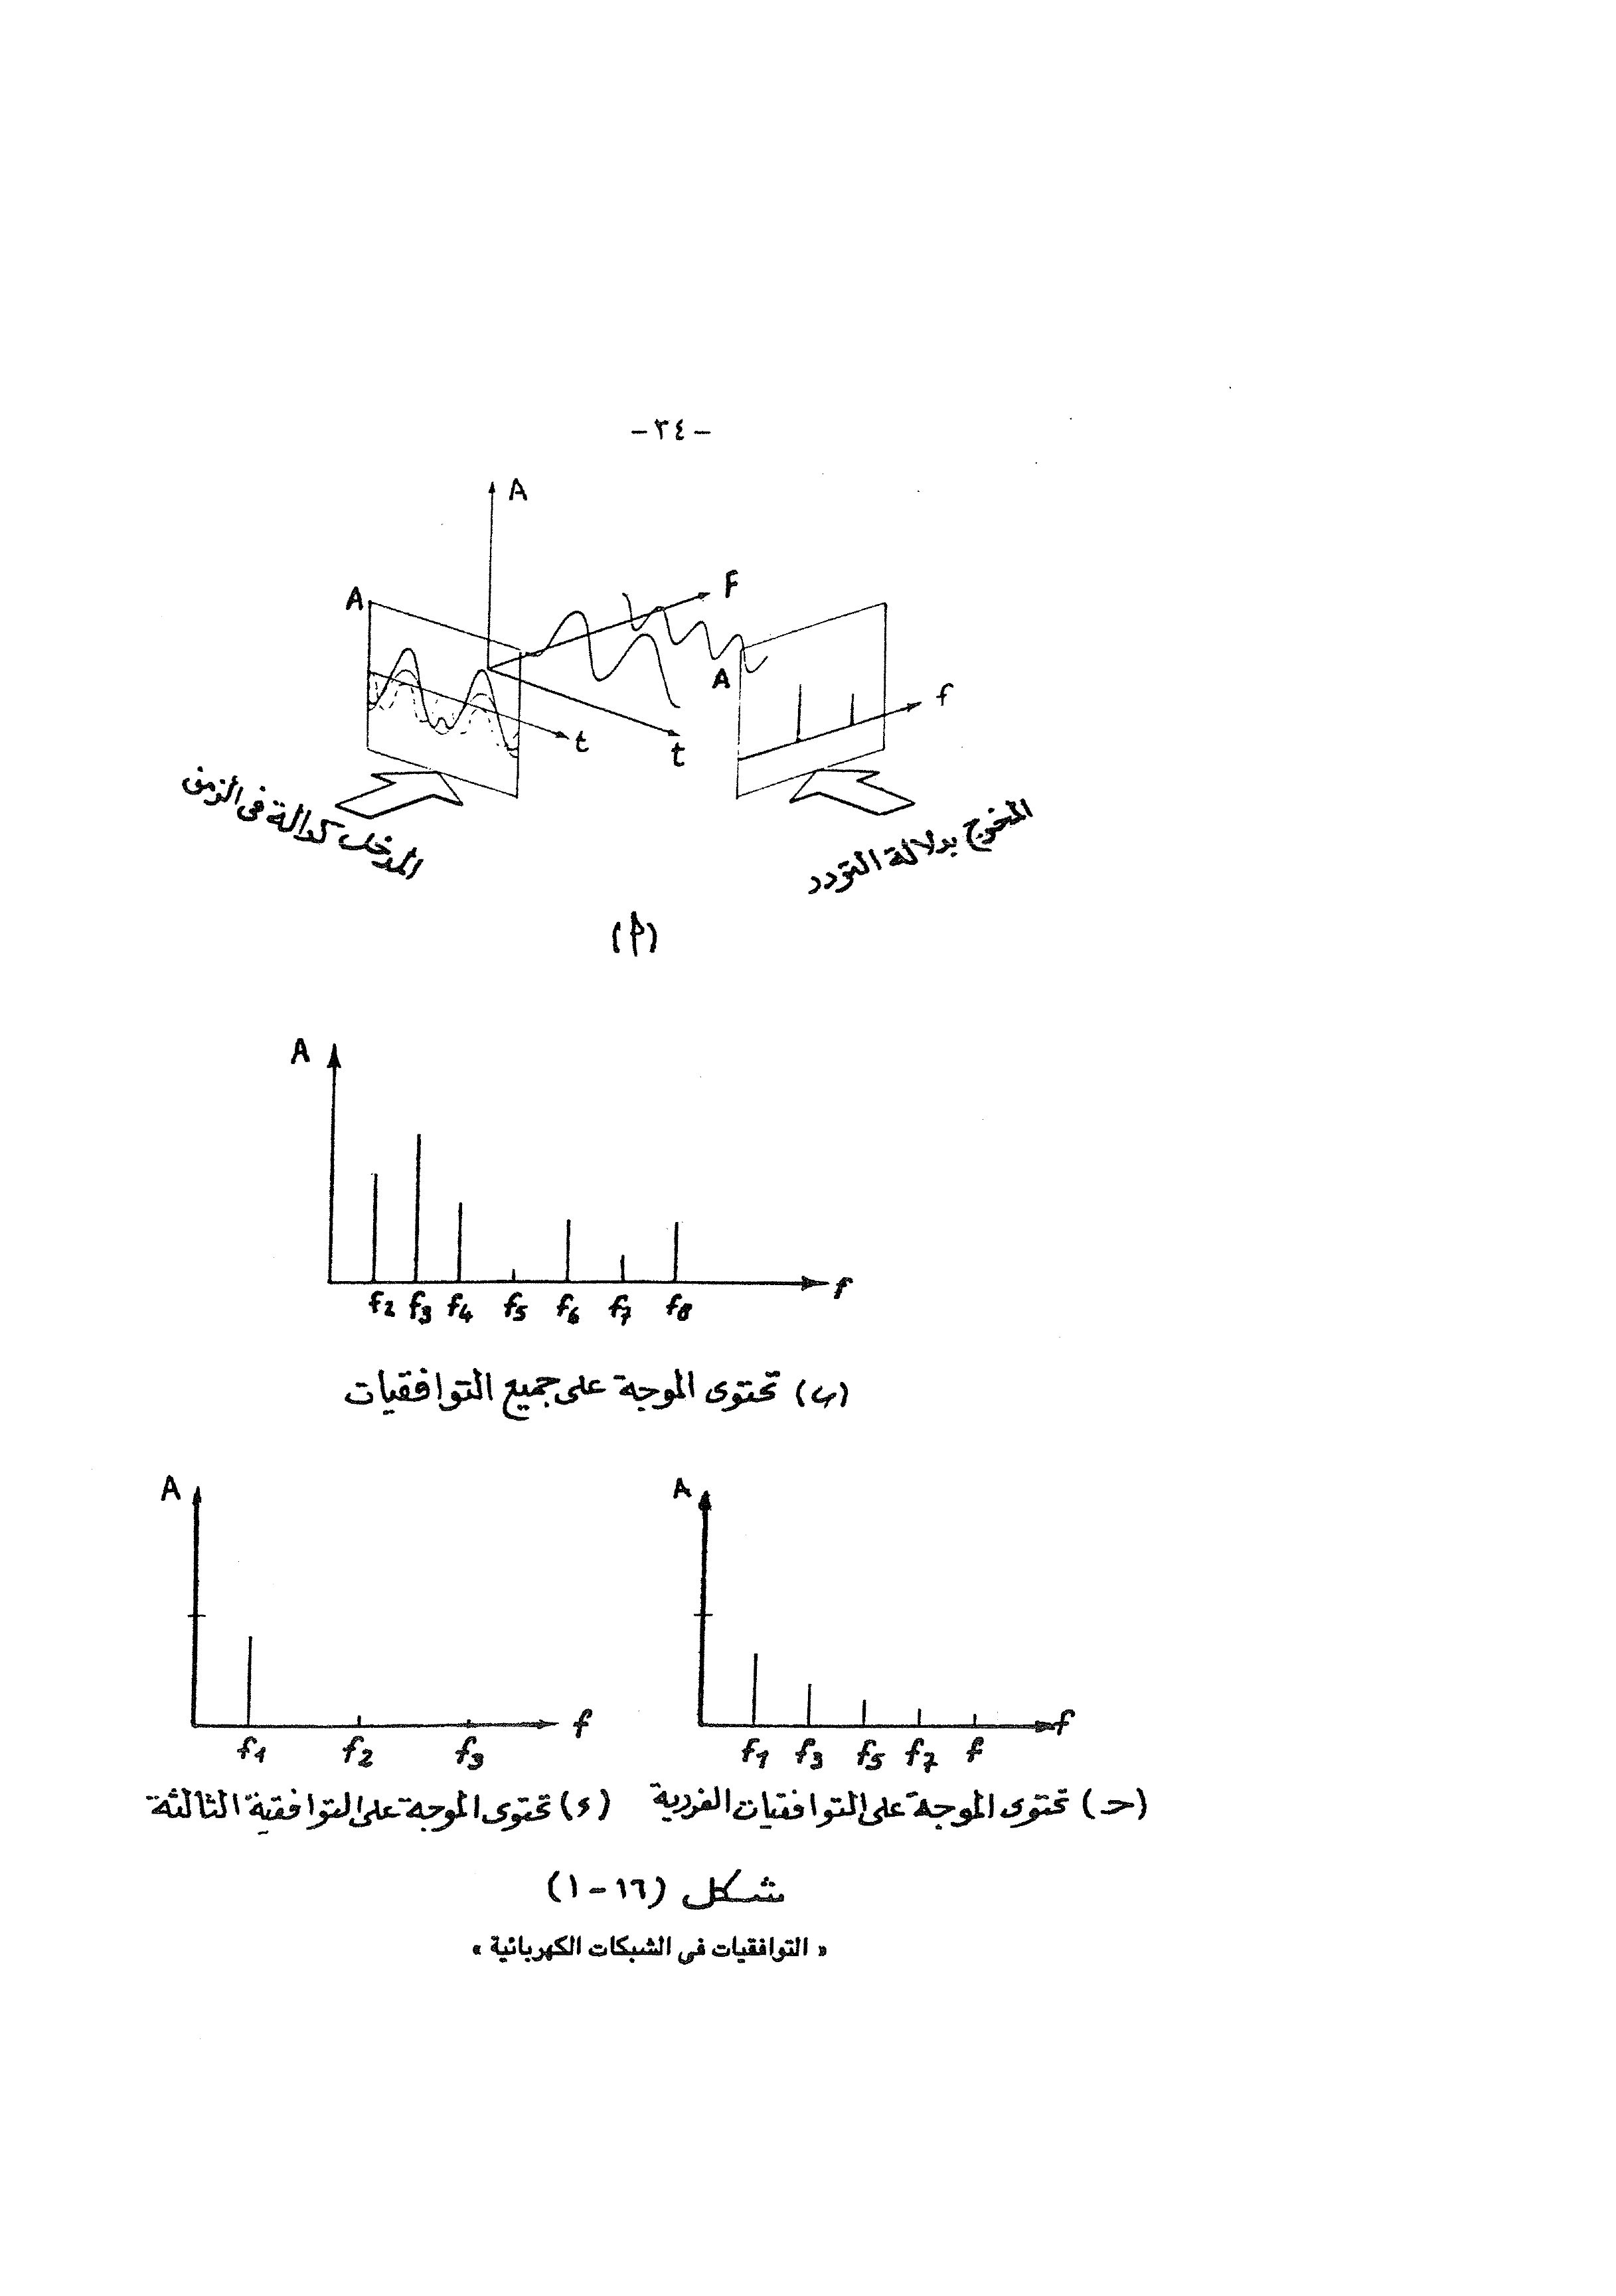 – ٣٤ –
A
A
F
A
f
t
t
المدخل كدالة فى الزمن
المخرج بدلالة التردد
(أ)
A
f
f2 f3 f4 f5 f6 f7 f8
(ب) تحتوى الموجة على جميع التوافقيات
A
A
f
f
f1 f2 f3
f1 f3 f5 f7 f
(حـ) تحتوى الموجة على التوافقيات الفردية
(ء) تحتوى الموجة على التوافقية الثالثة
شكل (١٦ – ١)
« التوافقيات فى الشبكات الكهربائية »